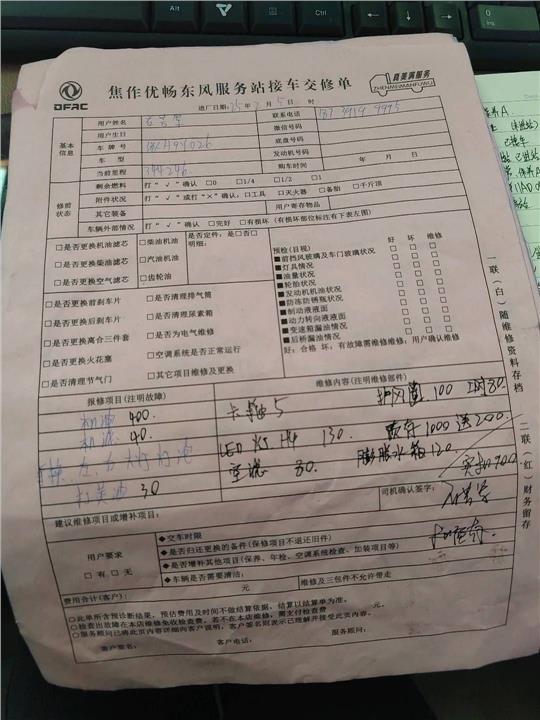 DFAC
焦作优畅东风服务站接车交修单
真美满服务
ZHENMEIMANFUWU
进厂日期：25年2月5日 时
基本信息
用户姓名 联系电话
用户生日 微信号码
车牌号 底盘号码
车型 发动机号码
当前里程 344246 购车时间 年 月 日
修前状态
剩余燃料 打“√”确认 □0 □1/4 □1/2 □1
附件状况 打“√”或打“×”确认：□工具 □灭火器 □备胎 □千斤顶
其它装备 用户寄存物品
车辆外部情况 打“√”确认 □完好 □有损坏（有损坏部位标注有下表左图）
□是否更换机油滤芯 □柴油机油 是否定件：是□否□
明细：
□是否更换柴油滤芯 □汽油机油
□是否更换空气滤芯 □齿轮油
□是否更换前刹车片 □是否清理排气筒
□是否更换后刹车片 □是否清理尿素箱
□是否更换离合三件套 □是否为电气维修
□是否更换火花塞 □空调系统是否正常运行
□是否清理节气门 □其它项目维修及更换
预检(目视) 好 坏 维修
■前挡风玻璃及车门玻璃状况 □ □ □
■灯具情况 □ □ □
■油量状况 □ □ □
■轮胎状况 □ □ □
■发动机机油状况 □ □ □
■防冻防锈瓶状况 □ □ □
■制动液液面 □ □ □
■动力转向液液面 □ □ □
■变速箱漏油情况 □ □ □
■后桥漏油情况 □ □ □
好：合格 坏：有故障需维修维修：用户确认维修
报修项目(注明故障) 维修内容(注明维修部件)
机油 400 卡箍 5 护风圈 100 工时 80
机滤 40. LED灯 H4 130. 1000 送200.
空滤 80. 膨胀水箱 120.
打黄油 30
司机确认签字：
建议维修项目或增补项目：
用户要求
□有 □无
◆交车时限
◆是否归还更换的备件(保修项目不退还旧件)
◆是否增补其他项目(保养、年检、空调系统检查、加装项目等)
◆车辆是否需要清洁：
费用合计(客户)： 元 维修及三包件不允许带走
○此单所含预诊断结果，预估费用及时间不做结算依据，结算以结算单为准。
○检查出故障在本店维修免收检查费，若不在本店维修，需支付检查费 元。
○服务顾问已确此页内容详细向客户说明，客户签名则表示已理解并接受此页内容。
客户签名： 客户电话： 服务顾问：
一联(白)随维修资料存档
二联(红)财务留存
Alt
Ctrl